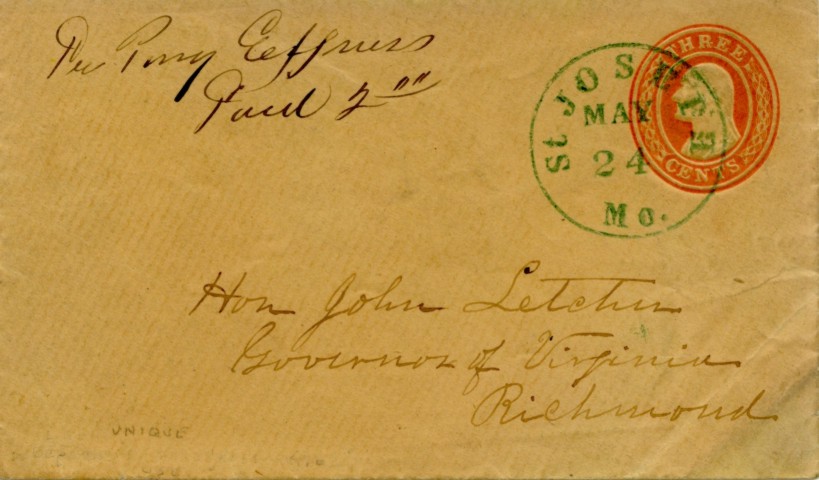 Per Pony Express
Paid 2 00
THREE
CENTS
St JOSEPH
MAY
24
Mo.
Hon John Letcher
Governor of Virginia
Richmond
UNIQUE